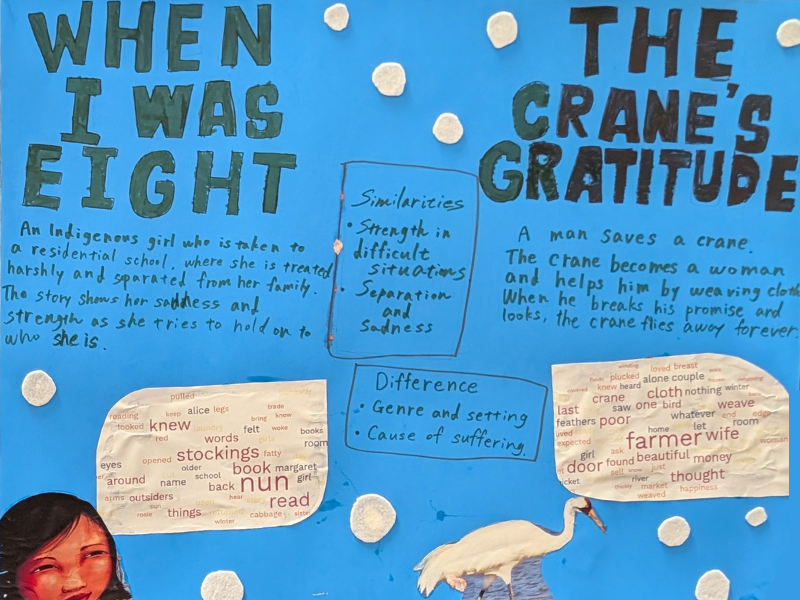 WHEN
I WAS
EIGHT
An Indigenous girl who is taken to
a residential school, where she is treated
harshly and sparated from her family.
The story shows her saddess and
strength as she tries to hold on to
who she is.
Similarities
• Strength in
difficult
situations
• Separation
and
Sadness
Difference
• Genre and setting
• Cause of suffering.
THE
CRANE'S
GRATITUDE
A man saves a crane.
The crane becomes a woman
and helps him by weaving cloth
When he breaks his promise and
looks, the crane flies away forever.
pulled
reading keep alice legs trade
looked knew laundry bring knew
red words felt woke books
girls room
opened stockings fatty
eyes older book margaret
around name school back nun girl
arms outsiders hear read
sun
rosie things returned cabbage sister
winter
winding loved breast
plucked alone couple
knew heard
crane cloth nothing winter
last saw one bird weave
feathers poor whatever end edge
lived home let room
expected farmer wife woman
girl ask
door found beautiful money
self just
river thought
market happiness
weaved